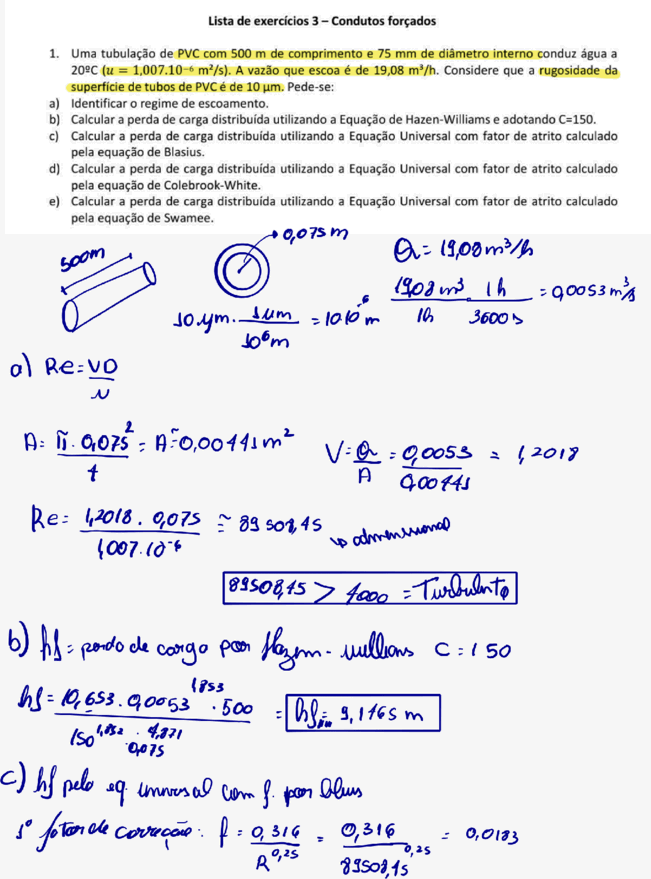 Lista de exercícios 3 – Condutos forçados
1. Uma tubulação de PVC com 500 m de comprimento e 75 mm de diâmetro interno conduz água a
20ºC (u = 1,007.10⁻⁶ m²/s). A vazão que escoa é de 19,08 m³/h. Considere que a rugosidade da
superfície de tubos de PVC é de 10 µm. Pede-se:
a) Identificar o regime de escoamento.
b) Calcular a perda de carga distribuída utilizando a Equação de Hazen-Williams e adotando C=150.
c) Calcular a perda de carga distribuída utilizando a Equação Universal com fator de atrito calculado
pela equação de Blasius.
d) Calcular a perda de carga distribuída utilizando a Equação Universal com fator de atrito calculado
pela equação de Colebrook-White.
e) Calcular a perda de carga distribuída utilizando a Equação Universal com fator de atrito calculado
pela equação de Swamee.
500m
0,075 m
Q = 19,08 m³/h
10 µm . 1µm / 10⁶m = 10.10⁻⁶ m
19,08 m³ / 1h . 1h / 3600 s = 0,0053 m³/s
a) Re = VD / ν
A = π . 0,075² / 4 = A ≅ 0,00441 m²
V = Q / A = 0,0053 / 0,00441 = 1,2018
Re = 1,2018 . 0,075 / 1,007.10⁻⁶ ≅ 89508,45
↳ adimensional
89508,45 > 4000 = Turbulento
b) hf = perda de carga por Hazem-Willians C = 150
hf = 10,653 . 0,0053^1,853 . 500 / 150^1,852 . 0,075^4,871 = hf = 9,1465 m
c) hf pelo eq. universal com f. por Blaus
1º fator de correção: f = 0,316 / R^0,25 = 0,316 / 89508,45^0,25 = 0,0183